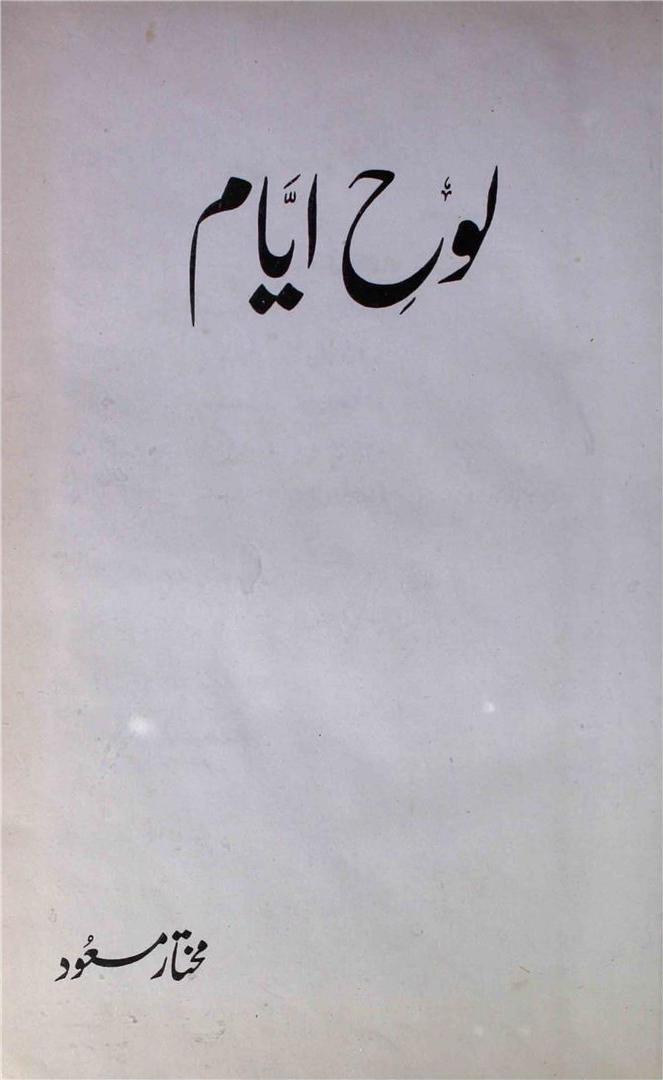 لوحِ ایّام
مختار مسعُود